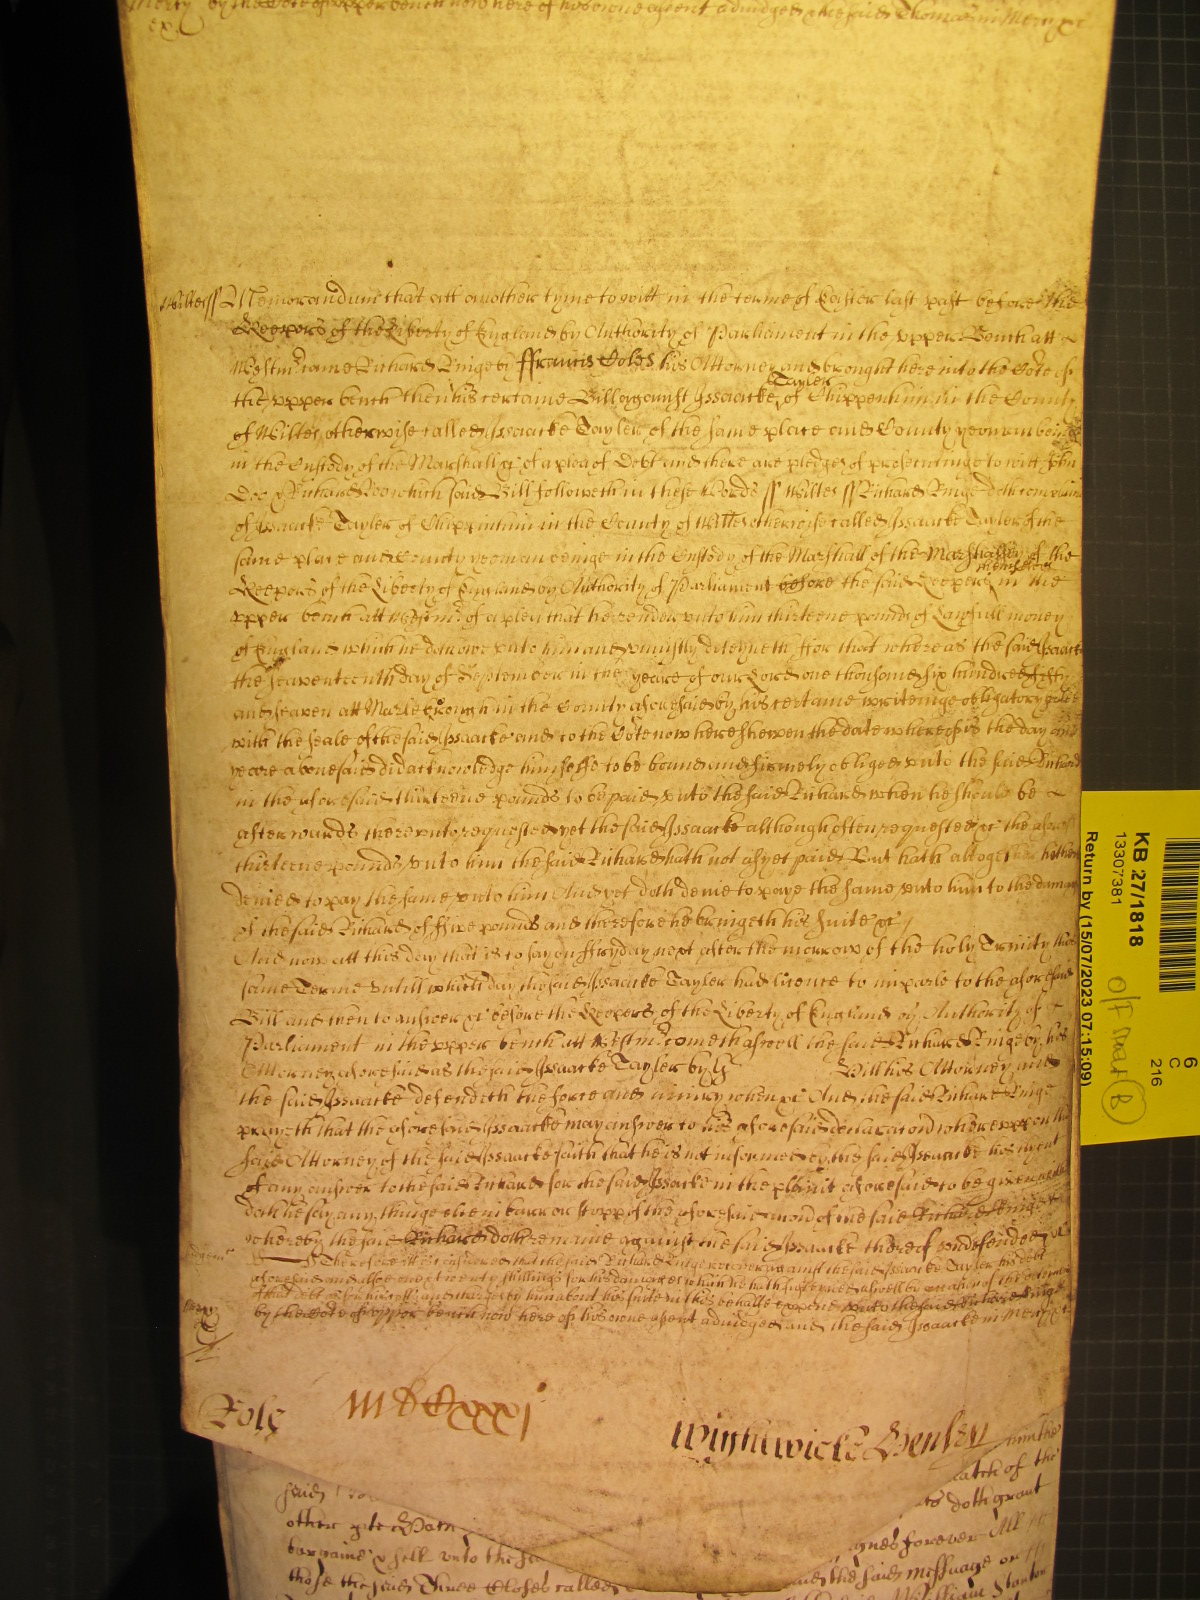 Mercy by the Cote of upper bench now here of his owne assent adiudged And the said Thomas in Mercy &c
ex
Wiltes ss Memorandum that att another tyme to witt in the terme of Easter last past before the
Keepers of the Liberty of England by Authority of Parliament in the upper Bench att
Westmr came Richard Ringe by ffrancis Coles his Attorney and brought here into the Cote of
Tayler
the upper bench then his certaine Bill against Issaacke of Chippenham in the County
of Wiltes otherwise called Issaacke Tayler of the same place and County yeoman beinge
in the Custody of the Marshall &c of a plea of Debt and there are pledges of prosecutinge to witt John
Doe & Richard Roo which said Bill followeth in these words ss Wiltes ss Richard Ringe doth complaine
of Issaacke Tayler of Chippenham in the County of Wiltes otherwise called Issaacke Tayler of the
same place and County yeoman beinge in the Custody of the Marshall of the Marshallsey of the
themselves
Keepers of the Liberty of England by Authority of Parliament before the said Keepers in the
upper bench att Westmr of a plea that he render unto him thirteene pounds of Lawfull money
of England which he doth owe unto him and uniustly deteyneth ffor that whereas the said Issaacke
the seaventeenth day of September in the yeare of our Lord one thousand six hundred fifty
and seaven att Marlebrough in the County aforesaid by his certaine writeinge obligatory sealed
with the seale of the said Issaacke and to the Cote now here shewen the date whereof is the day and
yeare abovesaid did acknowledge himselfe to be bound and firmely obliged unto the said Richard
in the aforesaid thirteene pounds to be paid unto the said Richard when he should be
afterwards thereunto requested yet the said Issaacke although often requested &c the aforesaid
thirteene pounds unto him the said Richard hath not as yet paid But hath altogether hitherto
denied to pay the same unto him And yet doth denie to paye the same unto him to the damage
of the said Richard of ffive pounds and therefore he bringeth his suite &c
And now att this day that is to say on ffryday next after the morrow of the holy Trinity this
same Terme untill which day the said Issaacke Tayler had licence to imparle to the aforesaid
Bill and then to answer &c before the Keepers of the Liberty of England by Authority of
Parliament in the upper bench att Westmr cometh aswell the said Richard Ringe by his
Attorney aforesaid as the said Issaacke Tayler by Hill his Attorney and
the said Issaacke defendeth the force and iniury when &c And the said Richard Ringe
prayeth that the aforesaid Issaacke may answer to his aforesaid declaracon whereupon the
said Attorney of the said Issaacke saith that he is not informed by the said Issaacke his Clyent
of any answer to the said Richard for the said Issaacke in the plaint aforesaid to be given neither
doth he say any thinge else in barr or stopp of the aforesaid accon of the said Richard Ringe
whereby the said Richard doth remaine against the said Issaacke thereof undefended &c
Therefore itt is considered that the said Richard Ringe recover against the said Issaacke Tayler his debt
aforesaid and alsoe twenty shillings for his damages which he hath susteyned aswell by occasion of the detencon
of that debt as for his costs and charges by him about his suite in this behalfe expended unto the said Richard Ringe
by the Cote of upper bench now here of his owne assent adiudged and the said Issaacke in Mercy &c
Mercy
Role
MDCxxxj
Wightwicke Henley
said
other
bargaine & sell unto the
those the said Three Closes called
atch of the
doth grant
forever All
the said messuage or
William Stanton
KB 27/1818
13307381
Return by (15/07/2023 07:15:09)
6
C
216